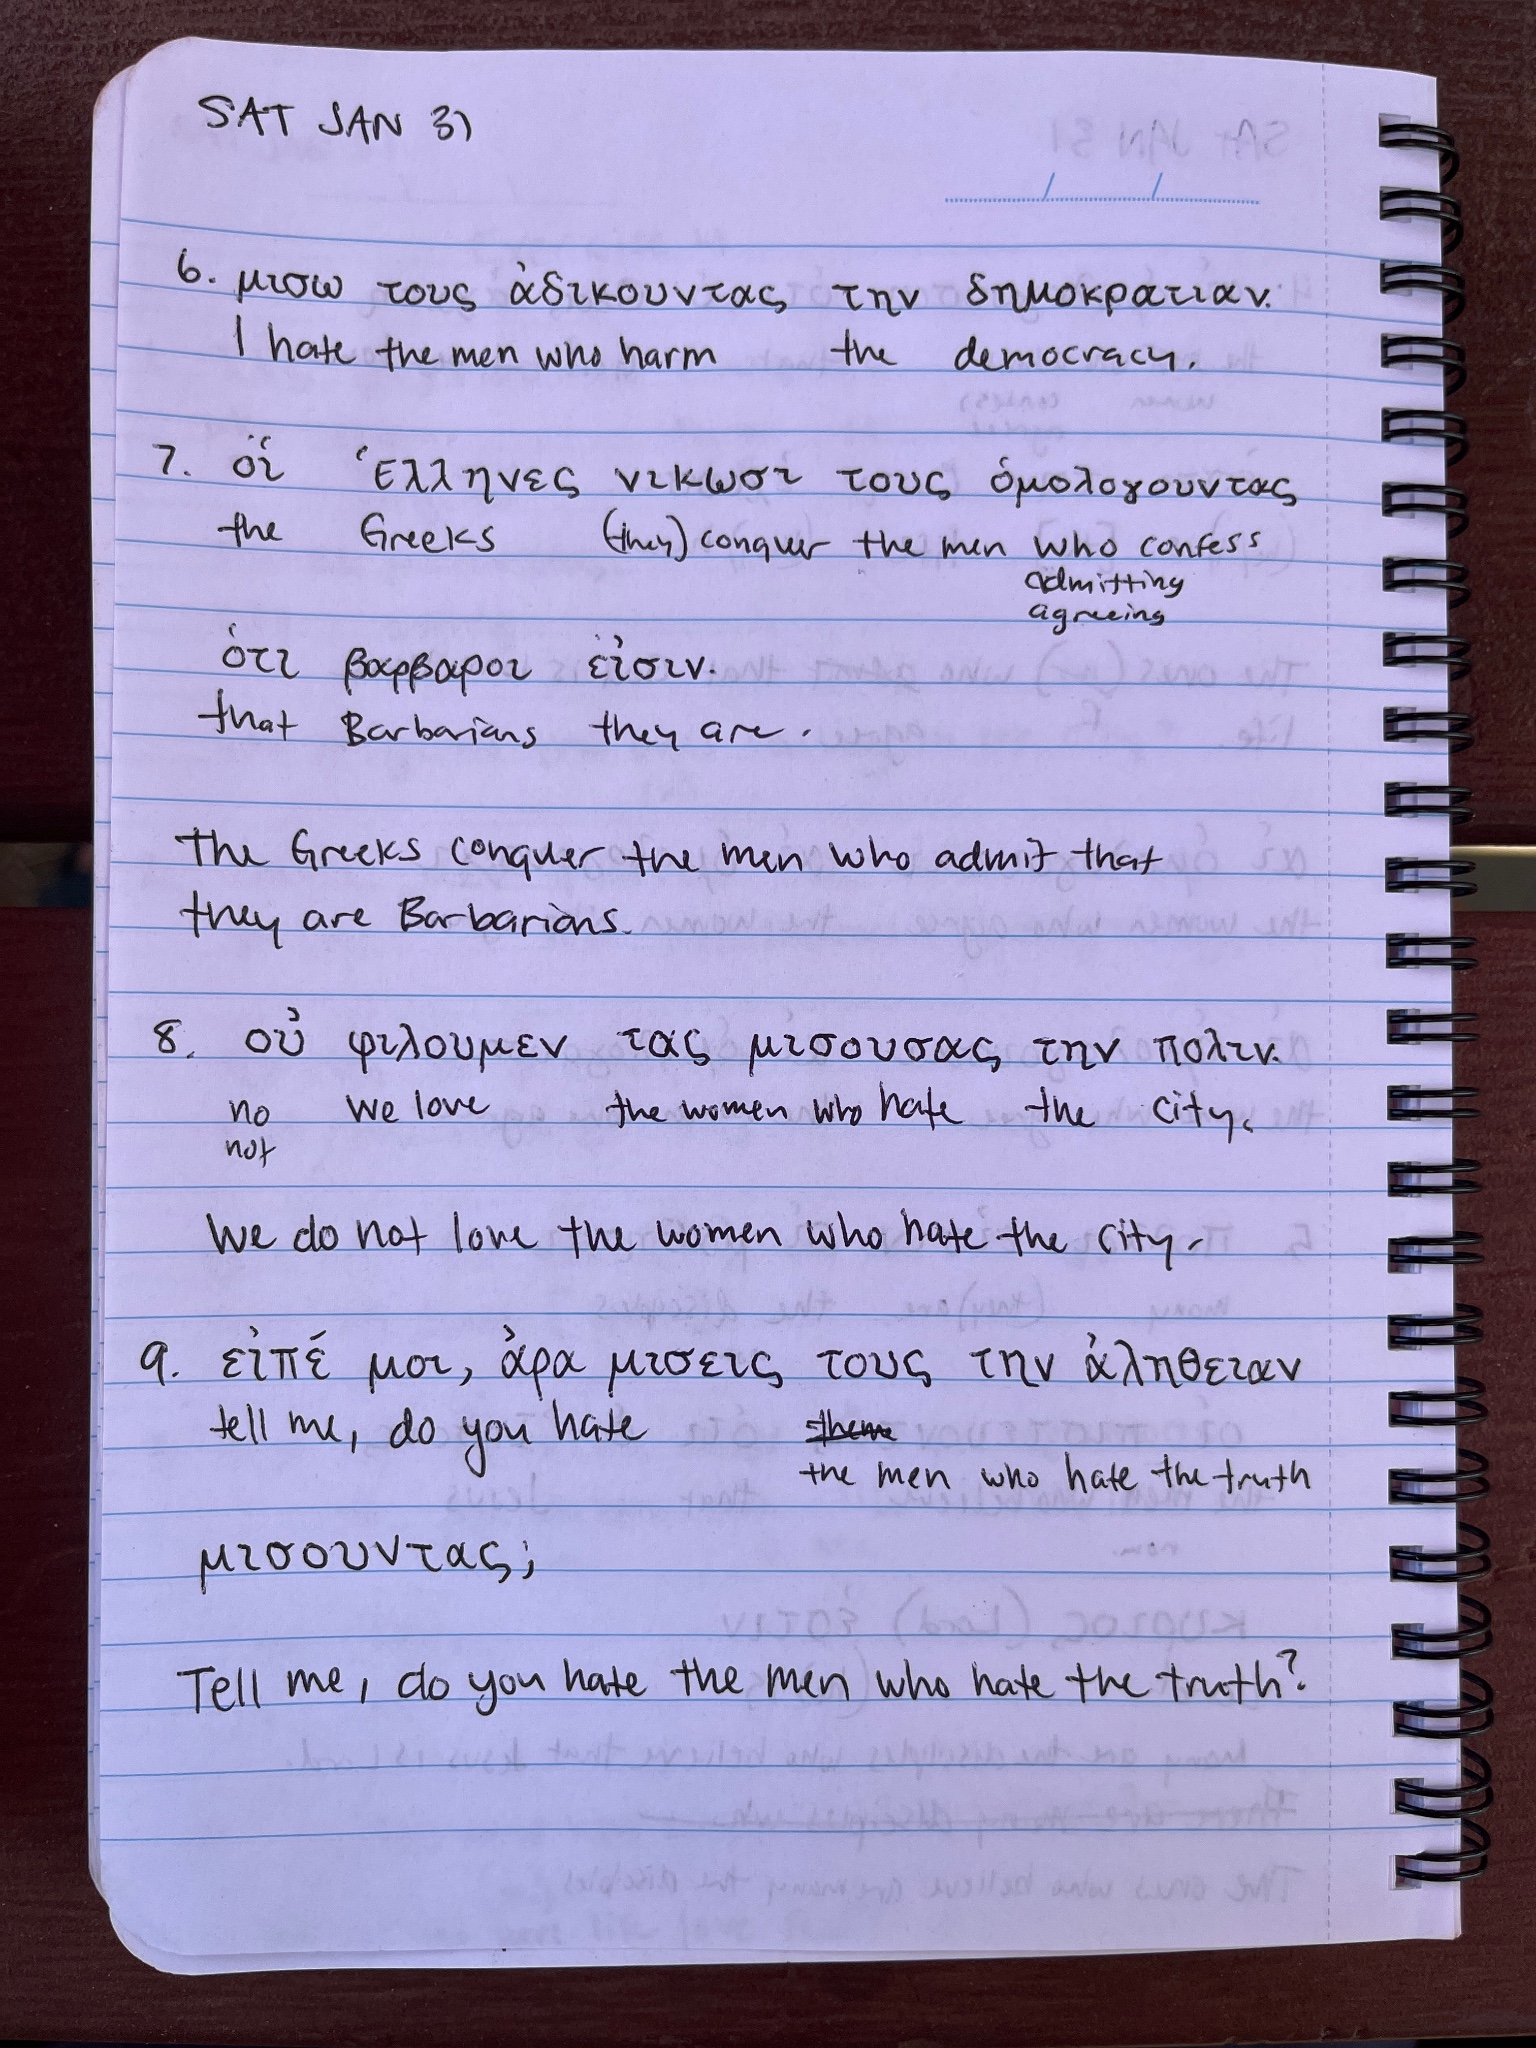 SAT JAN 31
6. μισω τους ἀδικουντας την δημοκρατιαν.
I hate the men who harm the democracy.
7. οἵ Ἑλληνες νικωσι τους ὁμολογουντας
the Greeks (they) conquer the men who confess
admitting
agreeing
ὁτι βαρβαροι εἰσιν.
that Barbarians they are.
The Greeks conquer the men who admit that
they are Barbarians.
8. οὐ φιλουμεν τας μισουσας την πολιν.
no we love the women who hate the city.
not
We do not love the women who hate the city.
9. εἰπέ μοι, ἀρα μισεις τους την ἀληθειαν
tell me, do you hate them
the men who hate the truth
μισουντας;
Tell me, do you hate the men who hate the truth?